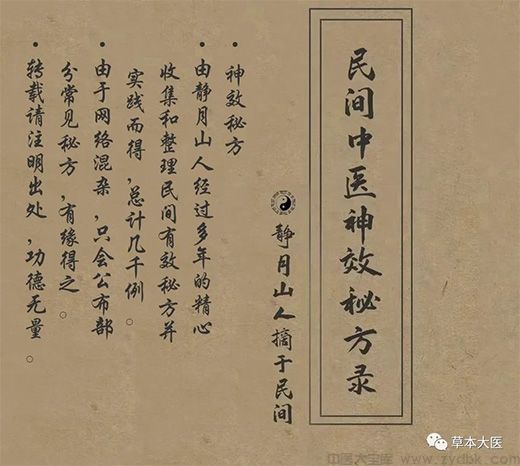 民间中医神效秘方录
静月山人摘于民间
• 神效秘方
• 由静月山人经过多年的精心
收集和整理民间有效秘方并
实践而得，总计几千例。
• 由于网络混杂，只会公布部
分常见秘方，有缘得之。
• 转载请注明出处，功德无量。
草本大医
中医大宝库 www.zydbk.com